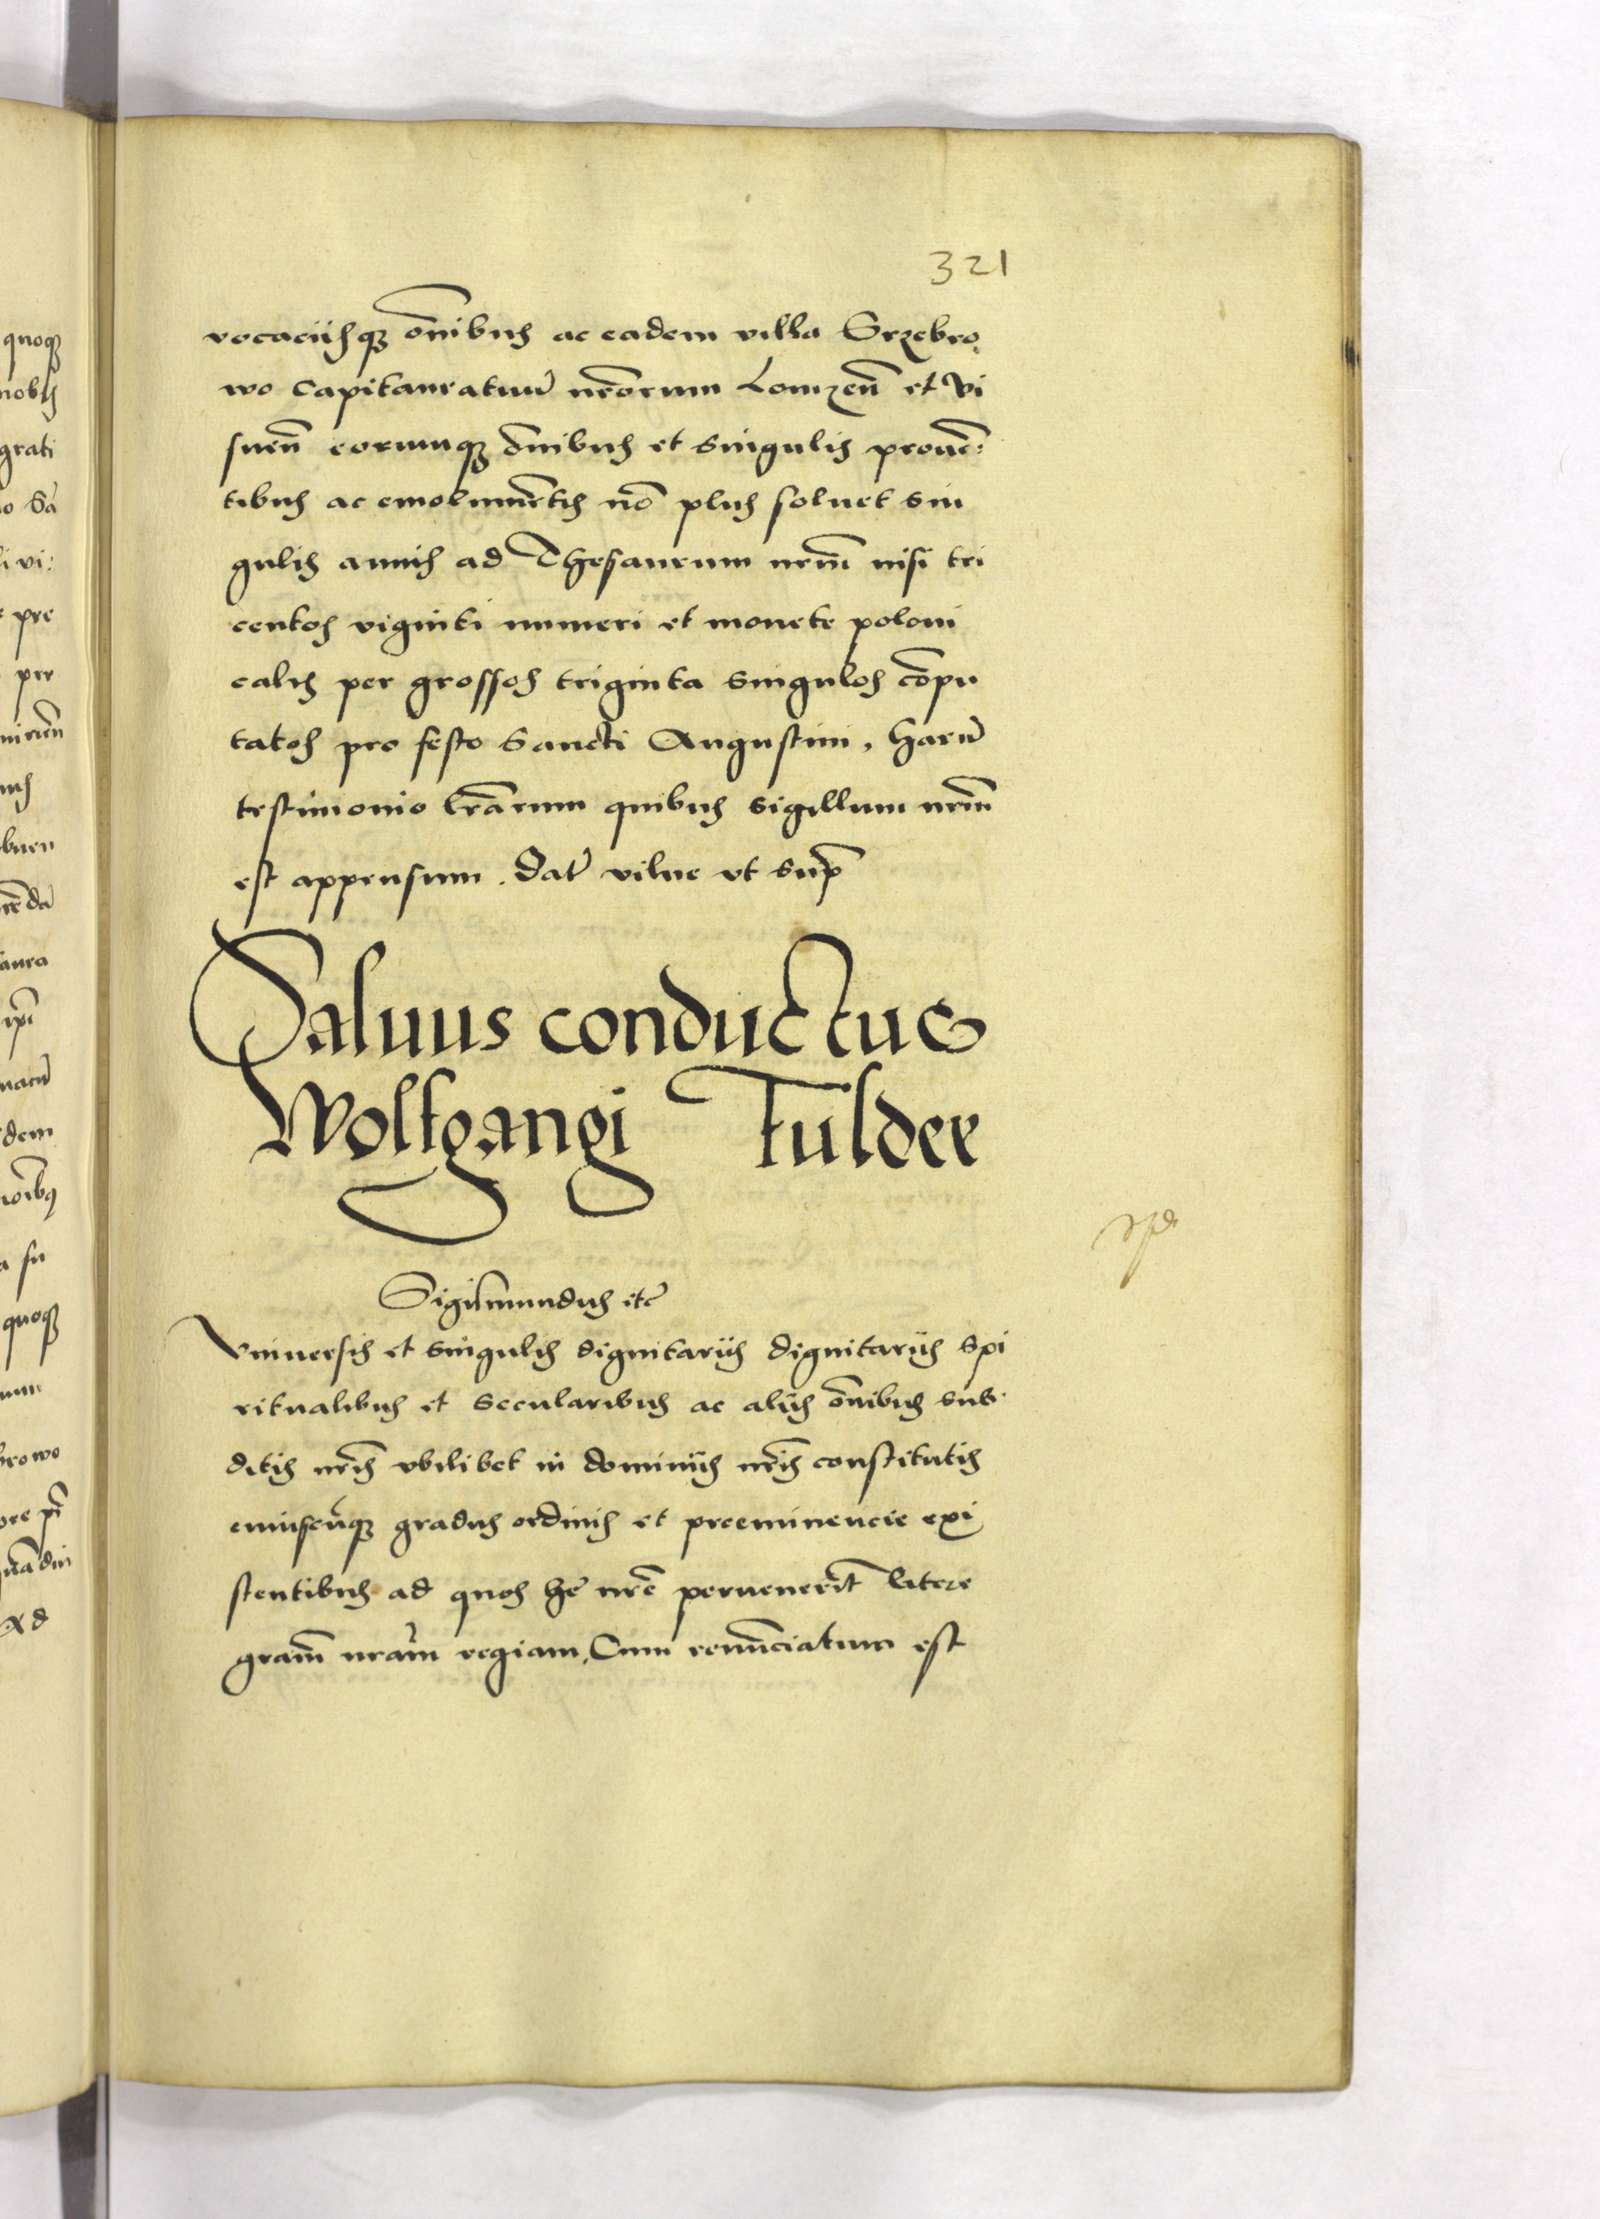 321
vocaciisq3 o͞nibus ac eadem villa Srzebro
wo capitaneatuu͞ nr͞orum Lomzen͞ et Vi
snen͞ eorumq3 o͞nibus et singulis proue͞:
tibus ac emolume͞tis no͞ plus soluet sin
gulis annis ad Thesaurum nr͞m nisi tri
centos viginti numeri et monete poloni
calis per grossos triginta singulos co͞pu
tatos pro festo Sancti Augustini, haru͞
testimonio lr͞arum quibus sigillum nr͞m
est appensum. Dat͞ vilne vt sup͞
Saluus conductus
Wolfgangi Fulder
Sigismundus etc͞
Vniuersis et singulis dignitariis dignitariis spi
ritualibus et secularibus ac aliis o͞nibus sub.
ditis nr͞is vbilibet in dominiis nr͞is constitutis
cuiuscu͞q3 gradus ordinis et preeminencie exi
stentibus ad quos he nr͞e peruenerit͞ litere
gram͞ nram͞ regiam, Cum renu͞ciatum est
quoq3
nobis
grati
li vi:
pre
per
dem
su
quoq3
browo
Ad